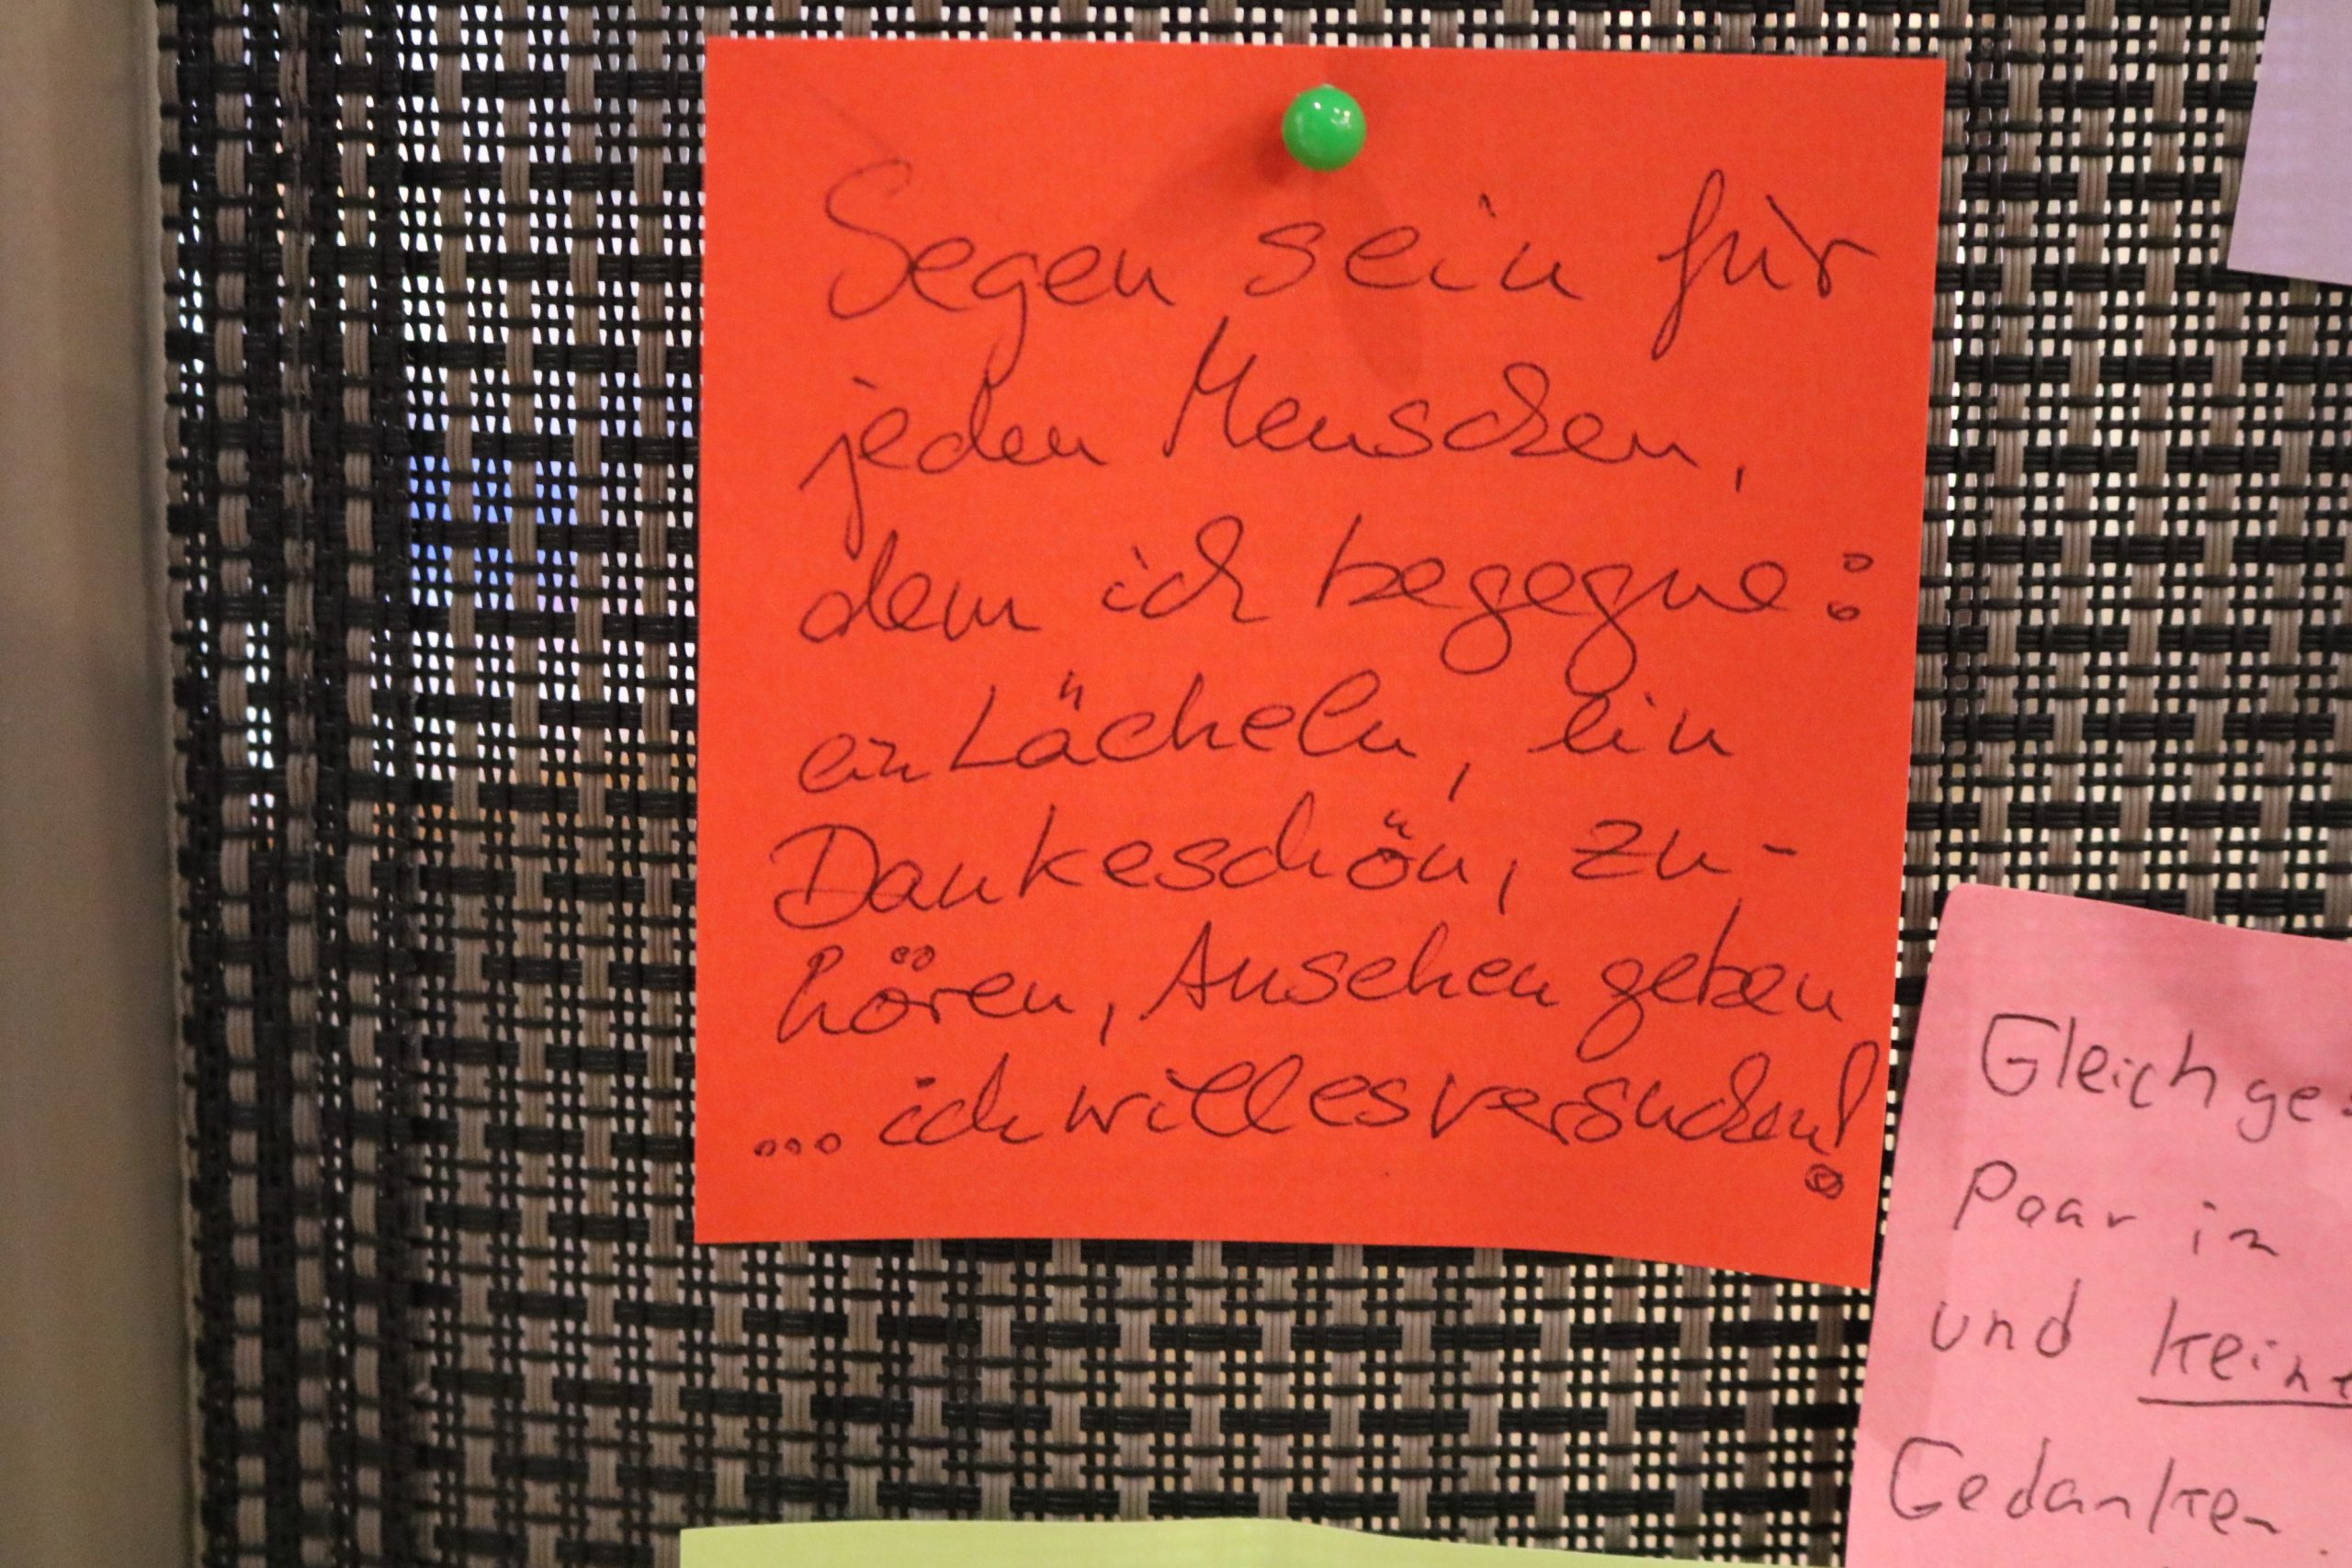 Segen sein für
jeden Menschen,
dem ich begegne:
ein Lächeln, ein
Dankeschön, zu-
hören, Ansehen geben
... ich will es versuchen!
Gleichge
Paar in
und keine
Gedanken